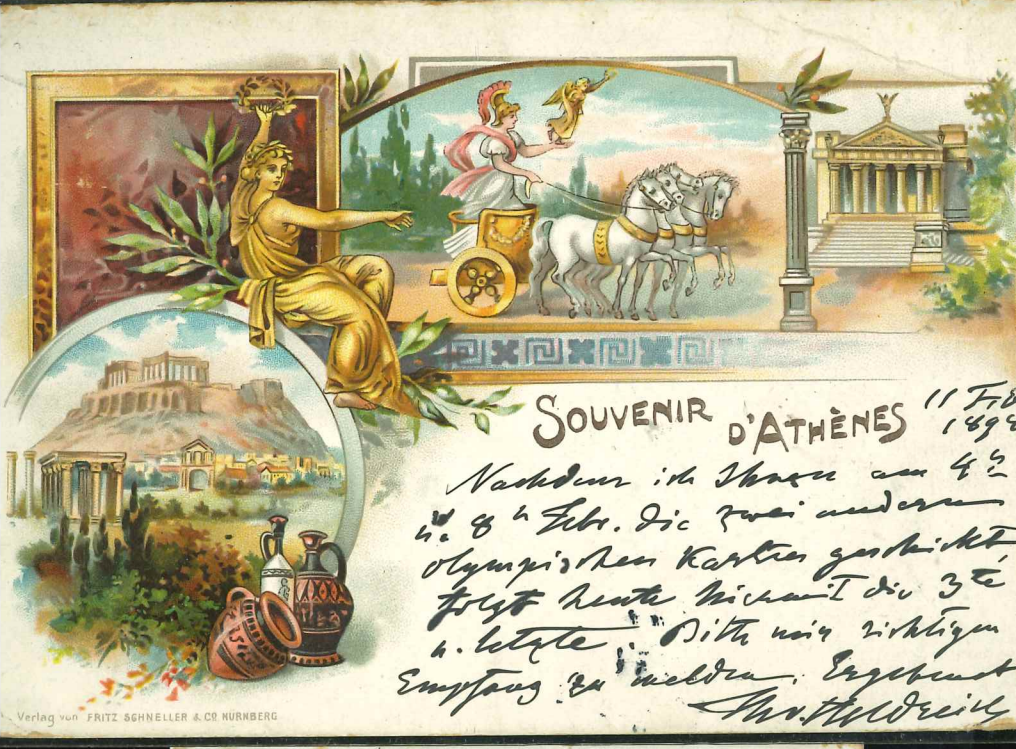 SOUVENIR D'ATHÈNES
11 Feb
1898
Nachdem ich Ihnen am 4n
u. 8n Febr. die zwei anderen
olympischen Karten geschickt,
folgt heute hiermit die 3te
u. letzte. Bitte mir richtigen
Empfang zu melden. Ergebenst
Verlag von FRITZ SCHNELLER & CO NÜRNBERG